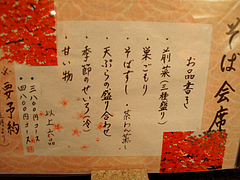 そば会席
お品書き
・前菜(三種盛り)
・巣ごもり
・そばずし ・茶わん蒸し
・天ぷらの盛り合わせ
・季節のせいろ(冷)
・甘い物
以上六品
・三八〇〇円コース
・四八〇〇円コース
要予約